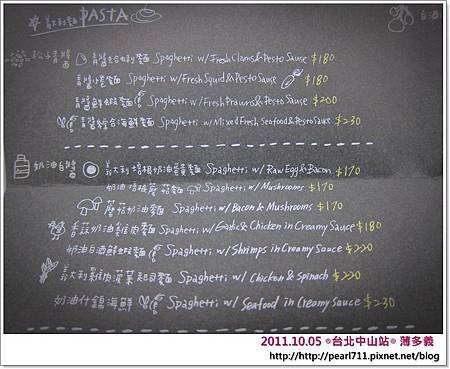 義大利麵 PASTA
松子青醬
青醬蛤蜊麵 Spaghetti w/Fresh Clams & Pesto Sause $180
青醬小卷麵 Spaghetti w/Fresh Squid & Pesto Sause $180
青醬鮮蝦麵 Spaghetti w/Fresh Prawns & Pesto Sause $200
青醬綜合海鮮麵 Spaghetti w/Mixed Fresh Seafood & Pesto Saus $230
奶油白醬
義大利培根奶油蛋黃麵 Spaghetti w/ Raw Egg & Bacon $170
奶油培根蘑菇麵 Spaghetti w/ Mushrooms $170
蘑菇奶油麵 Spaghetti w/ Bacon & Mushrooms $170
香蒜奶油雞肉麵 Spaghetti w/ Garlic & Chicken in Creamy Sauce $180
奶油白酒鮮蝦麵 Spaghetti w/ Shrimps in Creamy Sauce $220
義大利雞肉菠菜起司麵 Spaghetti w/ Chicken & Spinach $220
奶油什錦海鮮 Spaghetti w/ Seafood in Creamy Sauce $230
2011.10.05 ⊙台北中山站⊙ 薄多義
http://http://pearl711.pixnet.net/blog